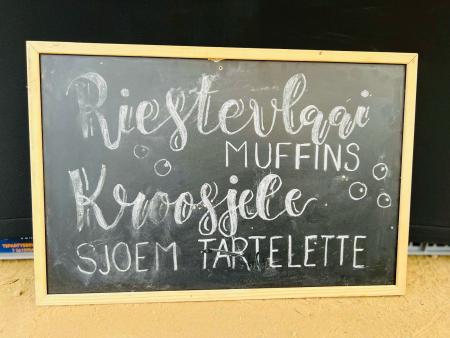 Riestevlaai
MUFFINS
Kroosjele
SJOEM TARTELETTE